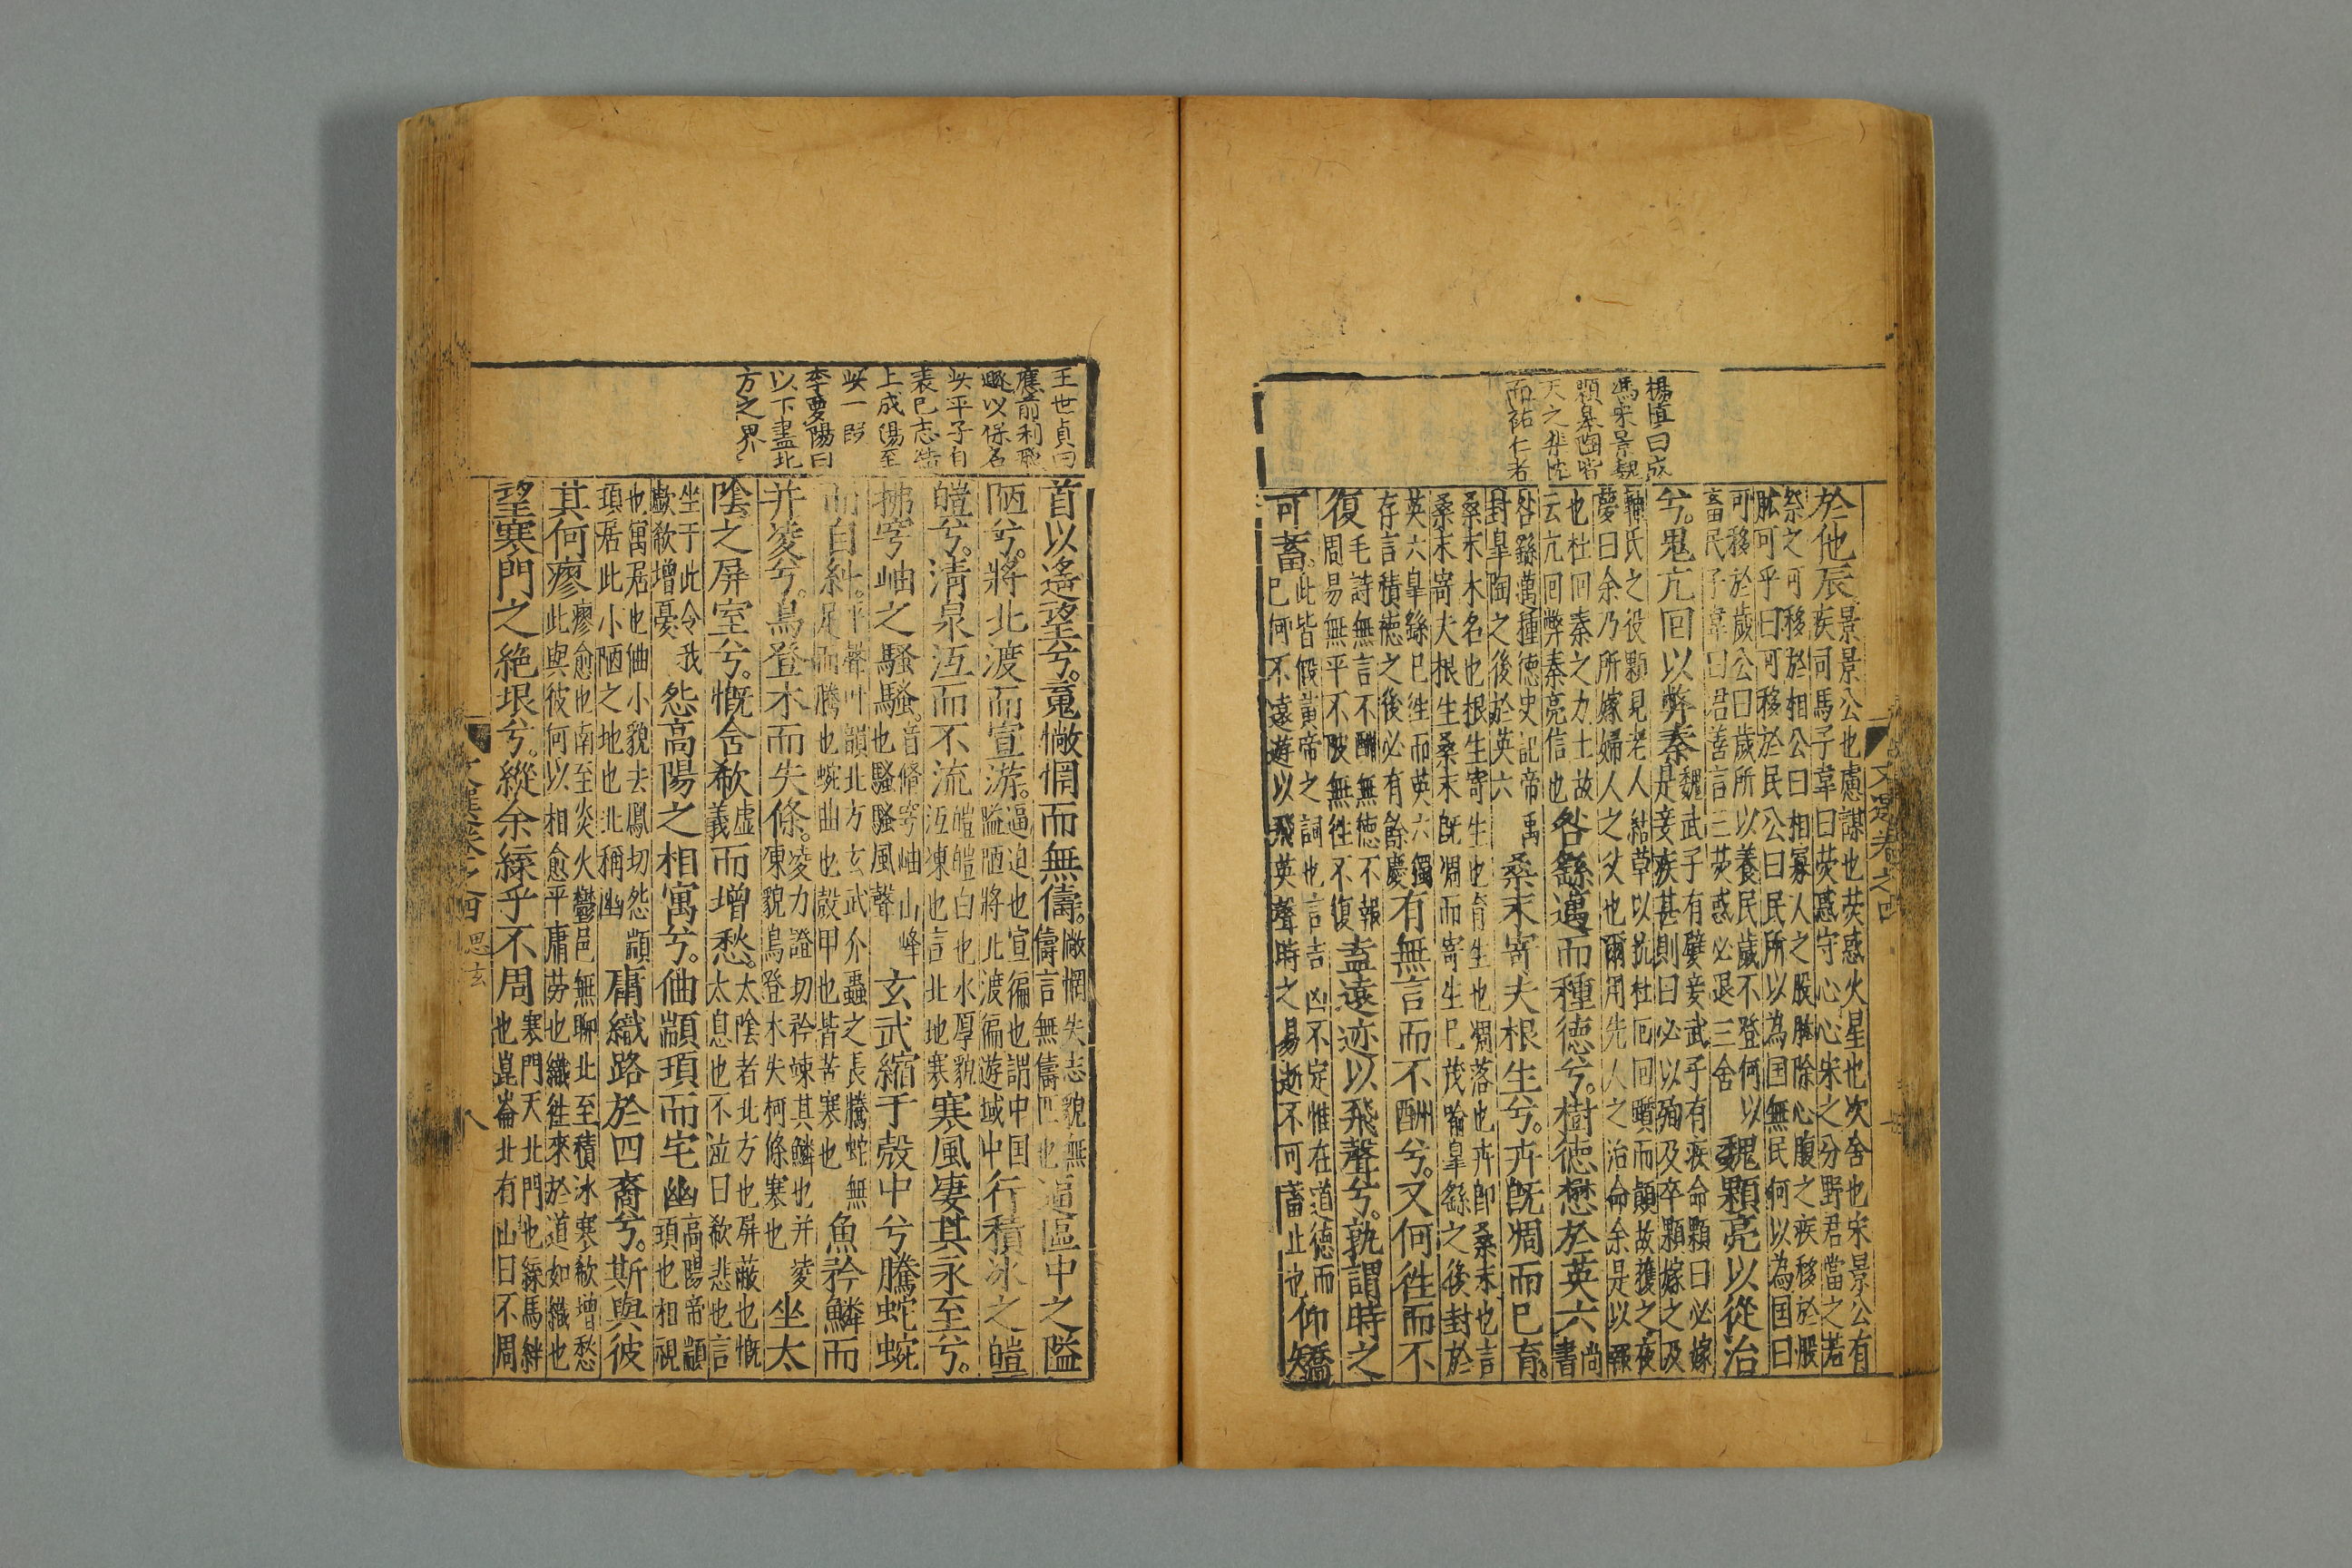 楊慎曰成
馮宋景魏
顆皋陶皆
天之棐忱
而祐仁者
於他辰
景景公也慮謀也熒惑火星也次舍也宋景公有
疾司馬子韋曰熒惑守心心宋之分野君當之若
祭之可移於相公曰相寡人之股肱除心腹之疾移於股
肱可乎曰可移於民公曰民所以為国無民何以為国曰
可移於歲公曰歲所以養民歲不登何以
畜民子韋曰君善言三熒惑必退三舍
魏顆亮以從治
兮。鬼亢回以弊秦
魏武子有嬖妾武子有疾命顆曰必嫁
是妾疾甚則曰必以殉及卒顆嫁之及
輔氏之役顆見老人結草以抗杜回回躓而顛故獲之夜
夢曰余乃所嫁婦人之父也爾用先人之治命余是以報
也杜回秦之力士故
云亢回弊秦亮信也
咎繇邁而種德兮。樹德懋於英六
尚書
咎繇邁種德史記帝禹
封皐陶之後於英六
桑末寄夫根生兮。卉既凋而已育。
桑末木名也根生寄生也育生也凋落也卉卽桑末也言
桑末寄夫根生桑末既凋而寄生已茂喻皐繇之後封於
英六皐繇已徃而英六獨
存言積德之後必有餘慶
有無言而不酬兮。又何徃而不
復
毛詩無言不酬無德不報
周易無平不陂無徃不復
盍遠迹以飛聲兮。孰謂時之
可蓄。
此皆假黃帝之詞也言吉凶不定惟在道德而
已何不遠遊以飛英聲時之易逝不可蓄止也
仰矯
文選卷之四
七
王世貞曰
應前利飛
遯以保名
此平子自
表已志結
上成湯至
此一段
李夢陽曰
以下盡北
方之界
首以遙望兮。䰟惝惘而無儔。
惝惘失志貌無
儔言無儔匹也
逼區中之隘
陋兮。將北渡而宣游。
逼迫也宣徧也謂中国
隘陋將北渡徧遊域中
行積冰之皚
皚兮。清泉沍而不流
皚皚白也水厚貌
沍凍也言北地寒
寒風凄其永至兮。
拂穹岫之騷騷。
音脩穹岫山峰
也騷騷風聲
玄武縮于殼中兮騰蛇蜿
而自糾。
平聲叶韻北方玄武介蟲之長騰蛇無
足而騰也蜿曲也殼甲也皆苦寒也
魚矜鱗而
并凌兮。鳥登木而失條。
凌力證切矜竦其鱗也并凌
凍貌鳥登木失柯條寒也
坐太
陰之屏室兮。慨含欷
虛
義
而增愁。
太陰者北方也屏蔽也慨
太息也不泣曰欷悲也言
坐于此令我
歔欷增憂
怨高陽之相寓兮。㑋顓頊而宅幽
高陽帝顓
頊也相視
也寓居也㑋小貌去鳳切怨顓
頊居此小陋之地也北稱幽
庸織路於四裔兮。斯與彼
其何瘳
瘳愈也南至炎火鬱邑無聊北至積冰寒欷增愁
此與彼何以相愈乎庸勞也織徃來於道如織也
望寒門之絶垠兮。縱余緤乎不周
寒門天北門也緤馬絆
也崑崙北有山曰不周
文選卷之四
思玄
八